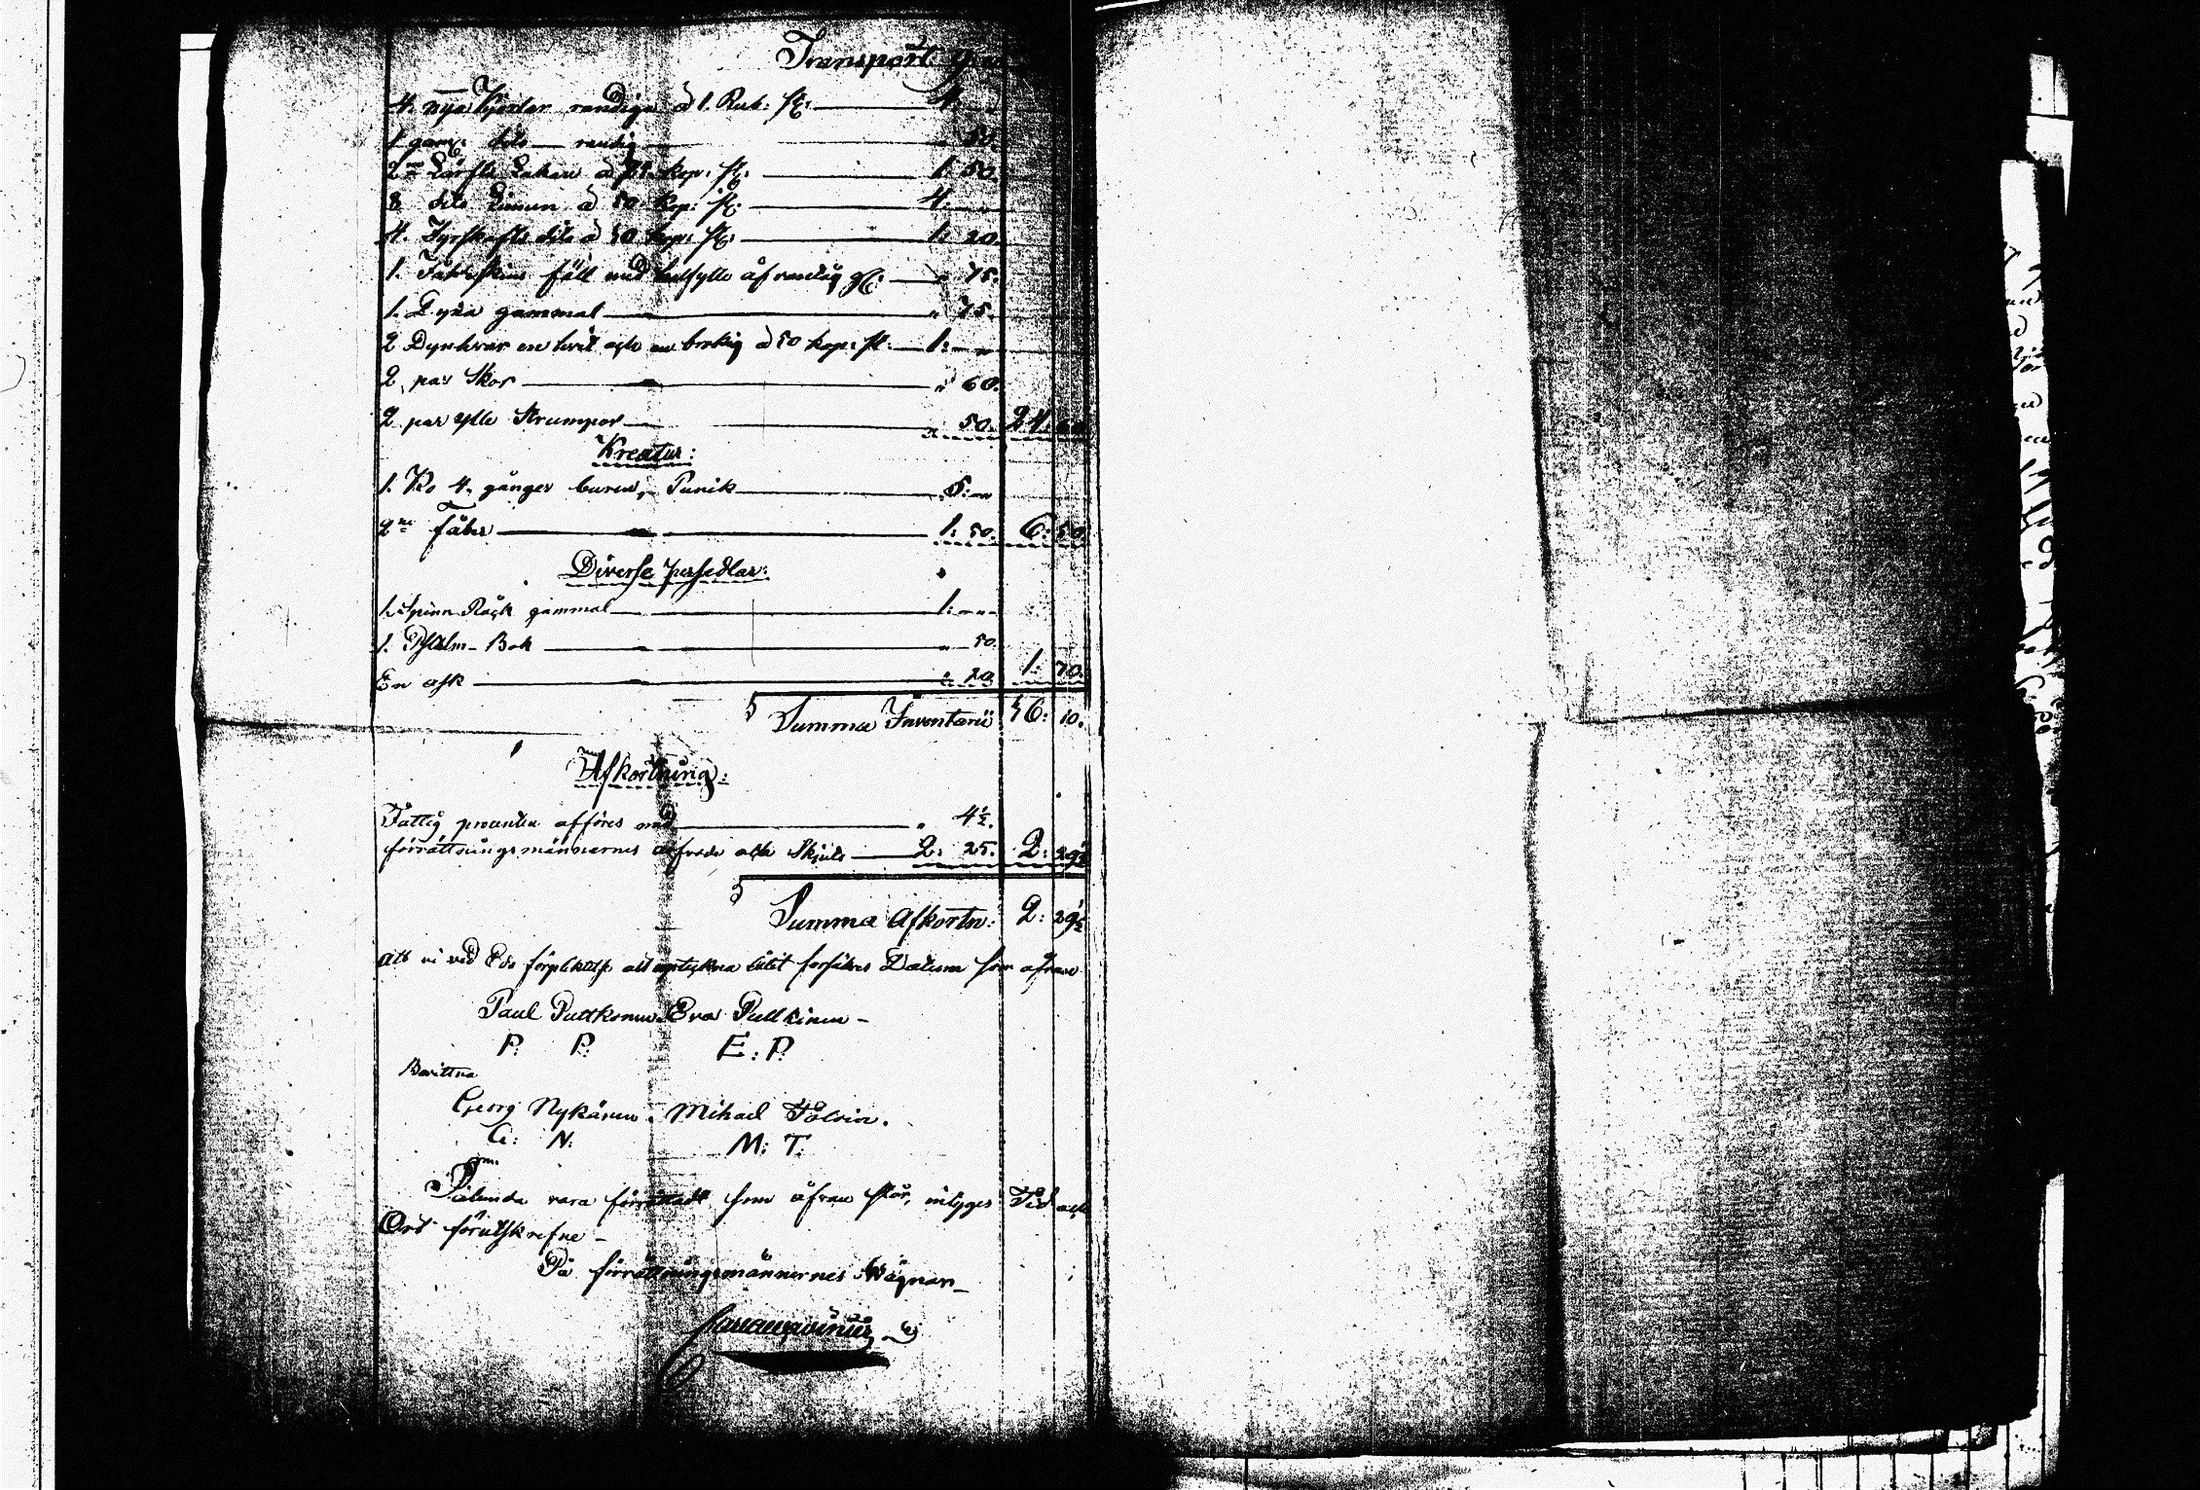 Transport
4. nya Kjortlar randiga à 1. Rub: st: 4.
1 gam: dito randig " 50.
2ne Lärfts Lakan à 75. kop: st: 1. 50.
8 dito Linnen à 50. kop: st: 4.
4. Fyrskafts dito à 30 kop: st: 1. 20.
1. Fårskins fäll med af randig " 75.
1. Dyna gammal " 75.
2 Dynkvar en hvit och en brokig à 50 kop: st: 1:
2. par Skor " 60.
2 par ylle Strumpor " 50. 24. 60
Kreatur:
1. Ko 4. gånger buren, Punik 5:
2ne Fåhr 1: 50. 6: 50.
Diverse persedlar:
1. Spinn Råck gammal 1.
1. Psalm-Bok " 50.
En ask " 20 1: 70.
Summa Inventarii 46: 10.
Afkortning:
Fattig procenten afföres med " 4½.
förrättningsmännernes arfvode och Skjuts 2: 25. 2: 29½
Summa Afkortn: 2: 29½
Att vi ved Eds förplicktelse allt upteckna låtit försäkras Datum som åfvan
Paul Pullkinen Eva Pullkinen –
P: P: E: P:
Bevittna
Georg Nykänen. Mihael Tolvin.
G: N: M: T:
Sålunda vara förrättadt som åfvan står, intyges Tid och
Ort förutskrefne –
På förrättningsmännernes Wägnar –